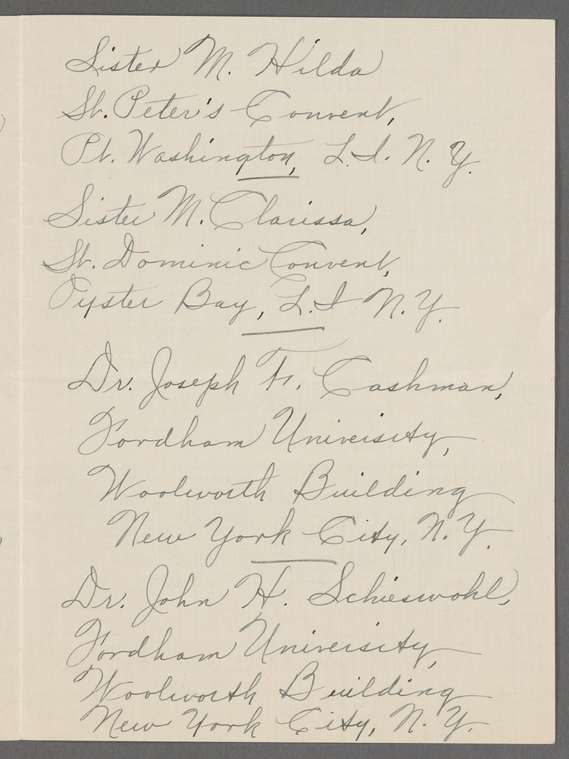 Sister M. Hilda
St. Peter's Convent,
Pt. Washington, L.I. N.Y.
Sister M. Clarissa,
St. Dominic Convent,
Oyster Bay, L.I N.Y.
Dr. Joseph F. Cashman,
Fordham University,
Woolworth Building
New York City, N.Y.
Dr. John H. Schieswohl,
Fordham University,
Woolworth Building
New York City, N.Y.